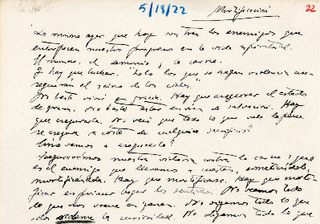 5/18/22
Mortificación
22
Lo mismo ayer que hoy son tres los enemigos que
entorpecen nuestro progreso en la vida espiritual.
El mundo, el demonio y la carne.
Y hay que luchar. "Solo los que se hagan violencia con-
seguirán el reino de los cielos".
No basta vivir en gracia. Hay que asegurar el estado
de gracia. No basta estar en vía de salvación. Hay
que asegurarla. Ya veis que todo lo que vale la pena
se asegura a costa de cualquier sacrificio
Cómo vamos a asegurarlo?
Aseguraremos nuestra victoria contra la carne, que
es el enemigo que llevamos a cuestas, sometiéndola
mortificándola. Hay que mortificarse. Hay que morti-
ficar en primer lugar los sentidos. No veamos todo
lo que nos viene en ganas. No oigamos todo lo que
nos la curiosidad. No digamos todo lo que